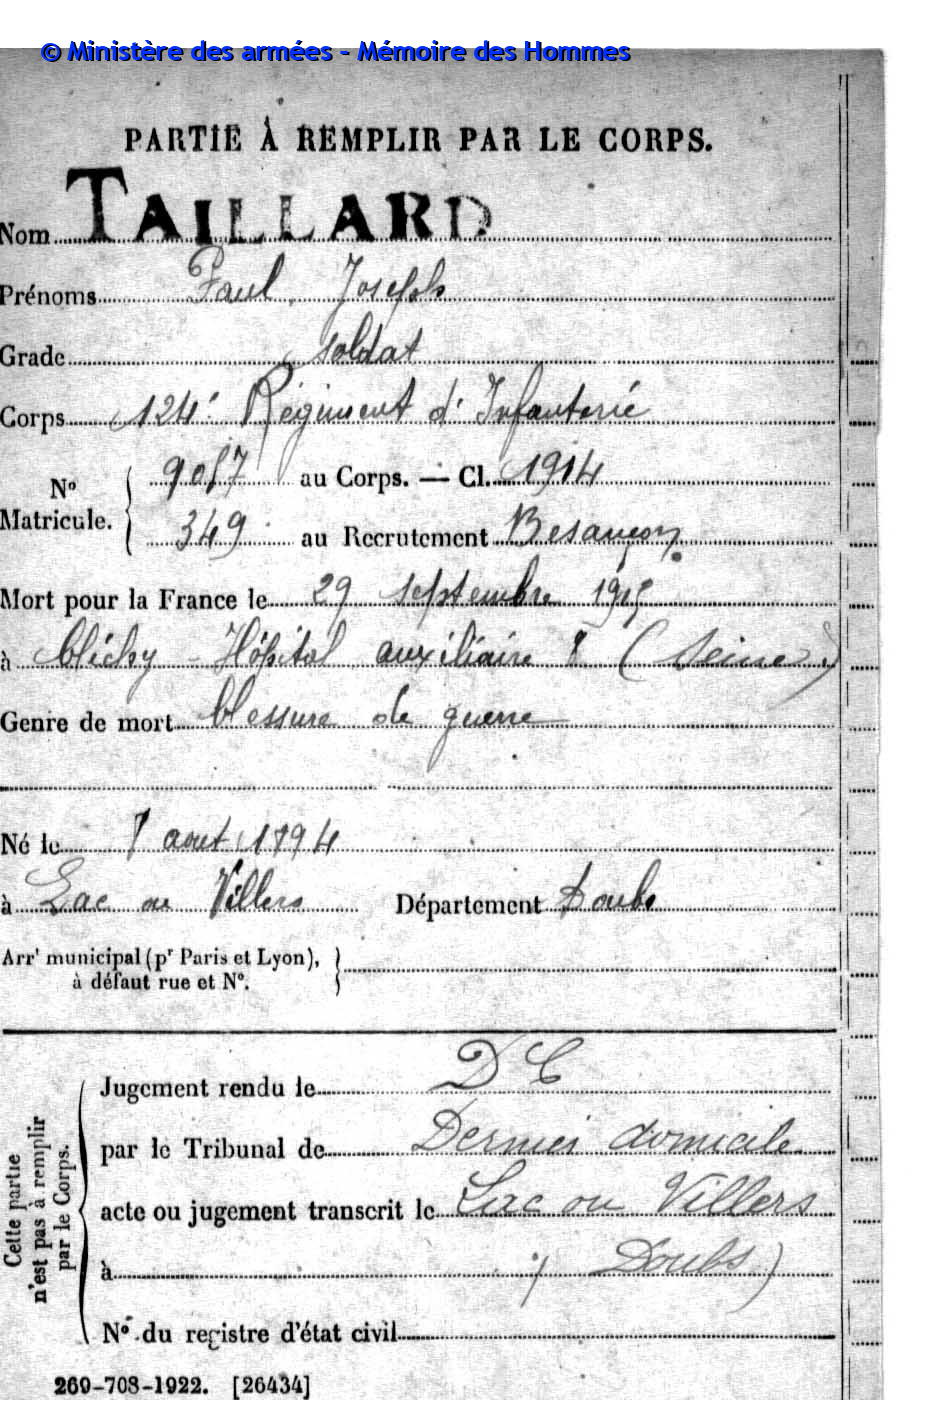 © Ministère des armées - Mémoire des Hommes
PARTIE À REMPLIR PAR LE CORPS.
Nom TAILLARD
Prénoms Paul Joseph
Grade soldat
Corps 124e Régiment d'Infanterie
No Matricule. 9057 au Corps. — Cl. 1914
349 au Recrutement Besançon
Mort pour la France le 29 septembre 1915
à Clichy - Hôpital auxiliaire (Seine)
Genre de mort blessure de guerre
Né le août 1894
à Lac ou Villers Département Doubs
Arrt municipal (pr Paris et Lyon),
à défaut rue et No.
Cette partie
n'est pas à remplir
par le Corps.
Jugement rendu le D C
par le Tribunal de Dernier domicile
acte ou jugement transcrit le Lac ou Villers
à (Doubs)
No du registre d'état civil
269-708-1922. [26434]